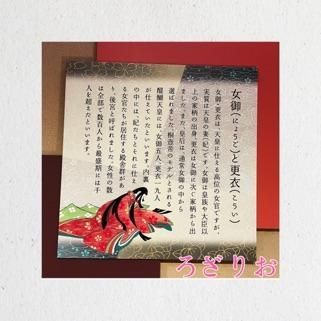 女御(にょうご)と更衣(こうい)
女御・更衣は、天皇に仕える高位の女官ですが、
実質は天皇の妻(妃)です。女御は皇族や大臣以
上の家柄の出身、更衣は女御に次ぐ家柄から出
選ばれました。また、皇后は、通常女御の中から
選ばれました。桐壺帝のモデルとされる
醍醐天皇には、女御五人、更衣一九人
が仕えていたといいます。内裏
の中には、妃たちとそれに仕え
る女官たちが居住する殿舎群があ
り、後宮と呼ばれました。女性の数
は全部で数百人から最盛期には千
人を超えたといいます。
ろざりお